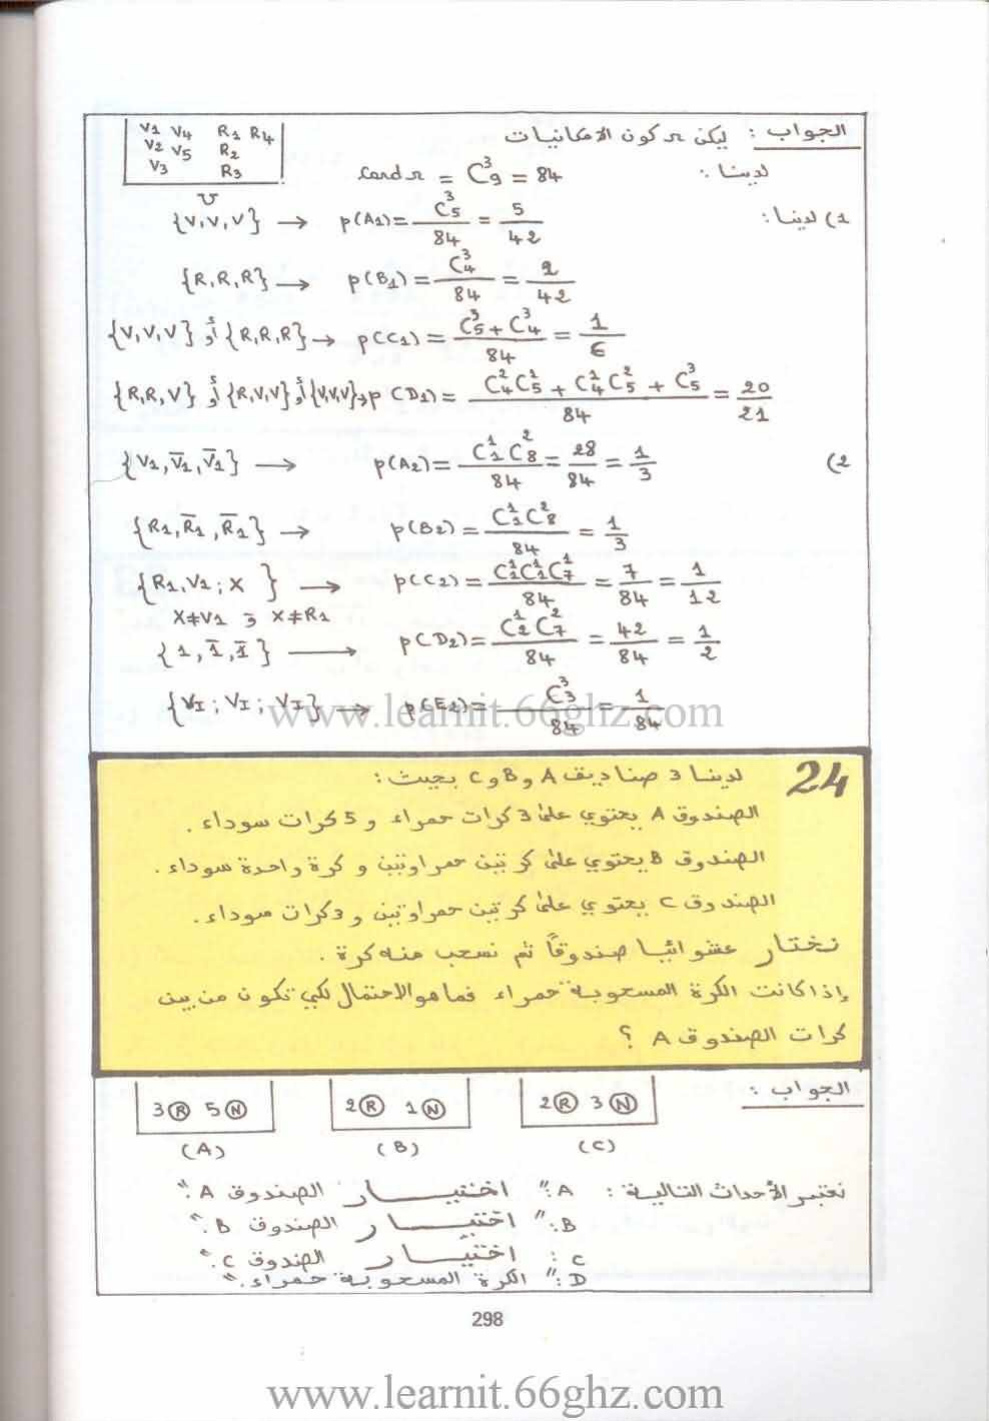 الجواب : ليكن Ω كون الامكانيات
V1 V4 R1 R4
V2 V5 R2
V3 R3
U
لدينا : Card Ω = C₉³ = 84
1) لدينا : {V,V,V} → p(A1) = C₅³/84 = 5/42
{R,R,R} → p(B1) = C₄³/84 = 2/42
{V,V,V} أو {R,R,R} → p(C1) = (C₅³ + C₄³)/84 = 1/6
{R,R,V} أو {R,V,V} أو {V,V,V} → p(D1) = (C₄²C₅¹ + C₄¹C₅² + C₅³)/84 = 20/21
2) {V1, V̄1, V̄1} → p(A2) = C₁¹C₈²/84 = 28/84 = 1/3
{R1, R̄1, R̄1} → p(B2) = C₁¹C₈²/84 = 1/3
{R1, V1 ; X } → p(C2) = C₁¹C₁¹C₇¹/84 = 7/84 = 1/12
X≠V1 و X≠R1
{1, 1̄, 1̄} → p(D2) = C₂¹C₇²/84 = 42/84 = 1/2
{VI ; VI ; VI} → p(E2) = C₃³/84 = 1/84
www.learnit.66ghz.com
24 لدينا 3 صناديق A و B و C بحيث :
الصندوق A يحتوي على 3 كرات حمراء و 5 كرات سوداء .
الصندوق B يحتوي على كرتين حمراوتين و كرة واحدة سوداء .
الصندوق C يحتوي على كرتين حمراوتين و 3 كرات سوداء .
نختار عشوائيا صندوقاً ثم نسحب منه كرة .
إذا كانت الكرة المسحوبة حمراء فما هو الاحتمال لكي تكون من بين
كرات الصندوق A ؟
الجواب :
3Ⓡ 5Ⓝ 2Ⓡ 1Ⓝ 2Ⓡ 3Ⓝ
(A) (B) (C)
نعتبر الأحداث التالية : A :" اختيار الصندوق A ."
B :" اختيار الصندوق B ."
C : اختيار الصندوق C ."
D :" الكرة المسحوبة حمراء ."
298
www.learnit.66ghz.com